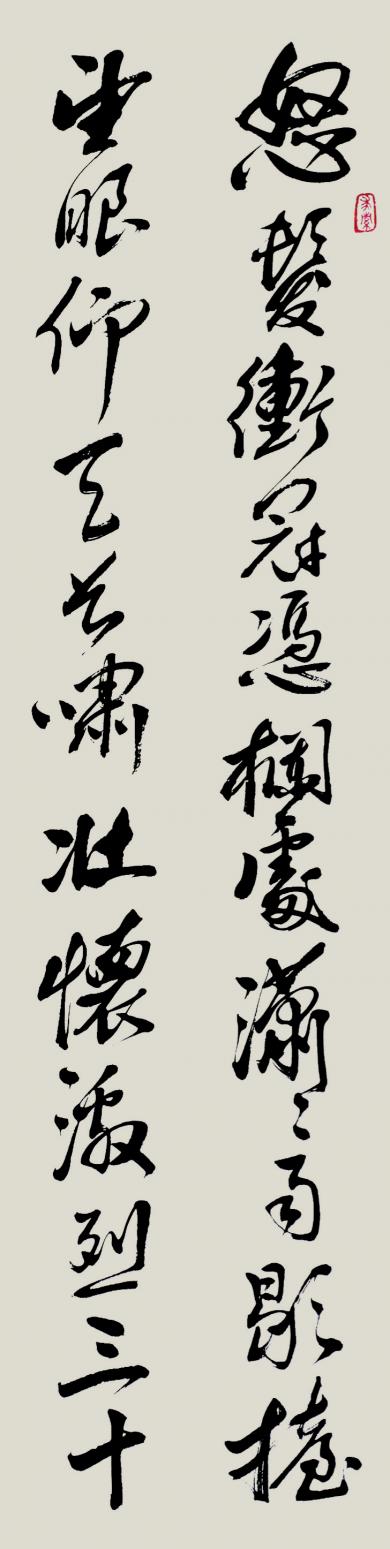 怒髮衝冠憑欄處瀟〻雨歇擡
望眼仰天長嘯壯懷激烈三十